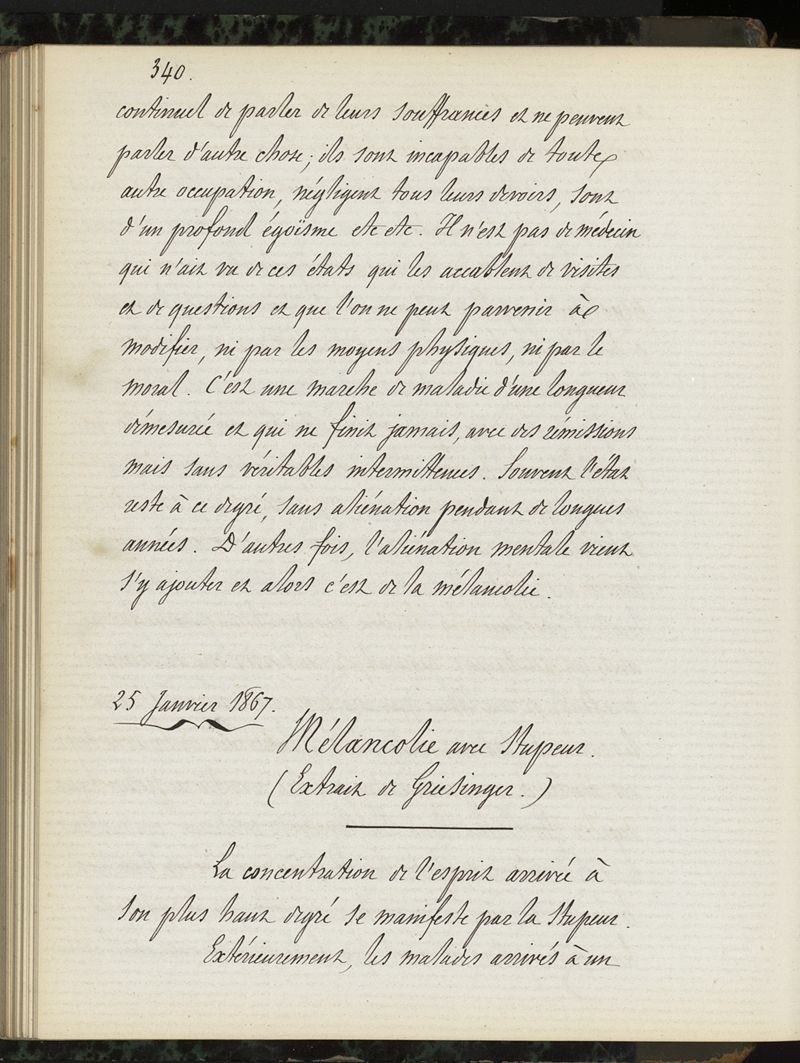 340.
continuel de parler de leurs souffrances et ne peuvent
parler d'autre chose; ils sont incapables de toute
autre occupation, négligent tous leurs devoirs, sont
d'un profond égoïsme etc etc. Il n'est pas de médecin
qui n'ait vu de ces états qui les accablent de visites
et de questions et que l'on ne peut parvenir à
modifier, ni par les moyens physiques, ni par le
moral. C'est une marche de maladie d'une longueur
démesurée et qui ne finit jamais, avec des rémissions
mais sans véritables intermittences. Souvent l'état
reste à ce degré, sans aliénation pendant de longues
années. D'autres fois, l'aliénation mentale vient
s'y ajouter et alors c'est de la mélancolie.
25 Janvier 1867.
Mélancolie avec Stupeur.
(Extrait de Griesinger.)
La concentration de l'esprit arrivée à
son plus haut degré se manifeste par la Stupeur.
Extérieurement, les malades arrivés à un